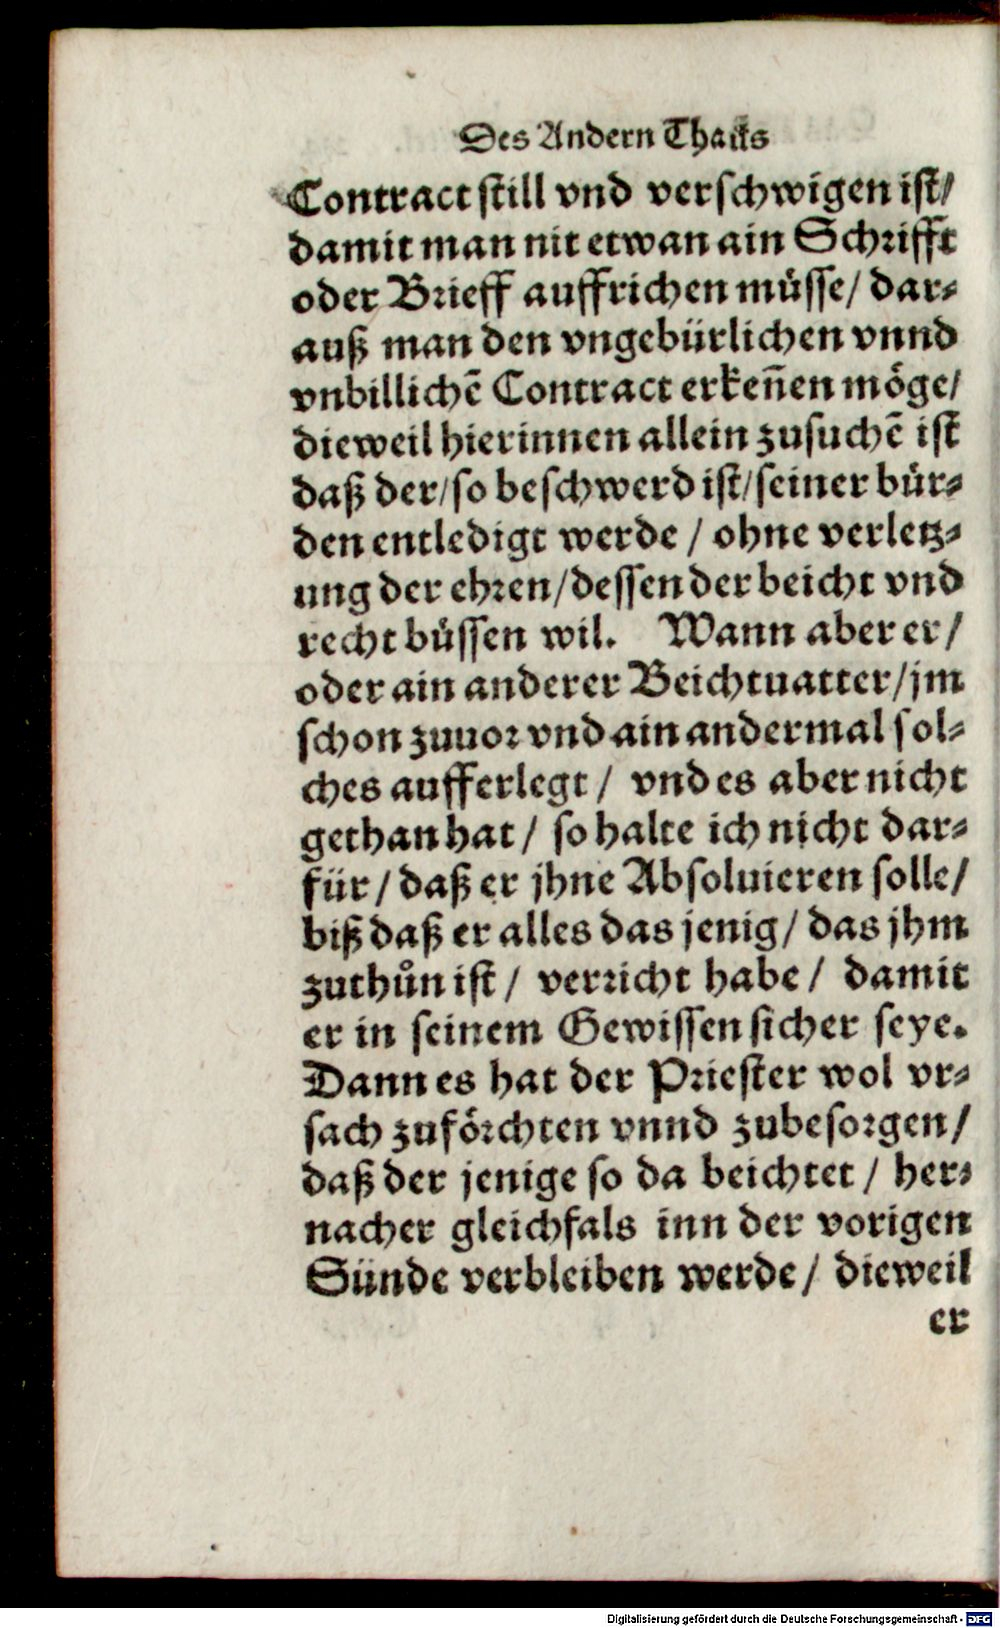 Des Andern Thails
Contract still vnd verschwigen ist/
damit man nit etwan ain Schrifft
oder Brieff auffrichen müsse/ dar⸗
auß man den vngebürlichen vnnd
vnbillichẽ Contract erkeñen möge/
dieweil hierinnen allein zusuchẽ ist
daß der/so beschwerd ist/seiner bür⸗
den entledigt werde / ohne verletz⸗
ung der ehren/dessen der beicht vnd
recht büssen wil. Wann aber er/
oder ain anderer Beichtuatter/jm
schon zuuor vnd ain andermal sol⸗
ches aufferlegt / vnd es aber nicht
gethan hat / so halte ich nicht dar⸗
für / daß er jhne Absoluieren solle/
biß daß er alles das jenig / das jhm
zuthůn ist / verricht habe / damit
er in seinem Gewissen sicher seye.
Dann es hat der Priester wol vr⸗
sach zuförchten vnnd zubesorgen/
daß der jenige so da beichtet / her⸗
nacher gleichfals inn der vorigen
Sünde verbleiben werde / dieweil
er
Digitalisierung gefördert durch die Deutsche Forschungsgemeinschaft - DFG